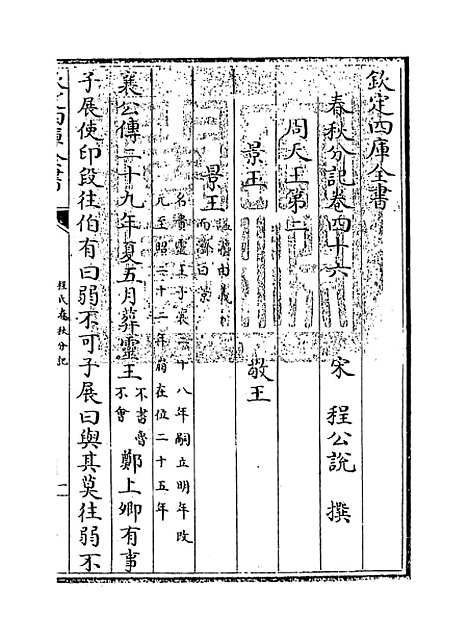 欽定四庫全書
春秋分記卷四十六
宋 程公說 撰
周天王第二
景王 敬王
景王 諡法由義而濟曰景
名貴靈王子襄二十八年嗣立明年改
元至昭二十二年崩在位二十五年
襄公傳二十九年夏五月葬靈王 不書魯不會 鄭上卿有事
子展使印段往伯有曰弱不可子展曰與其莫往弱不
欽定四庫全書
程氏春秋分記
一